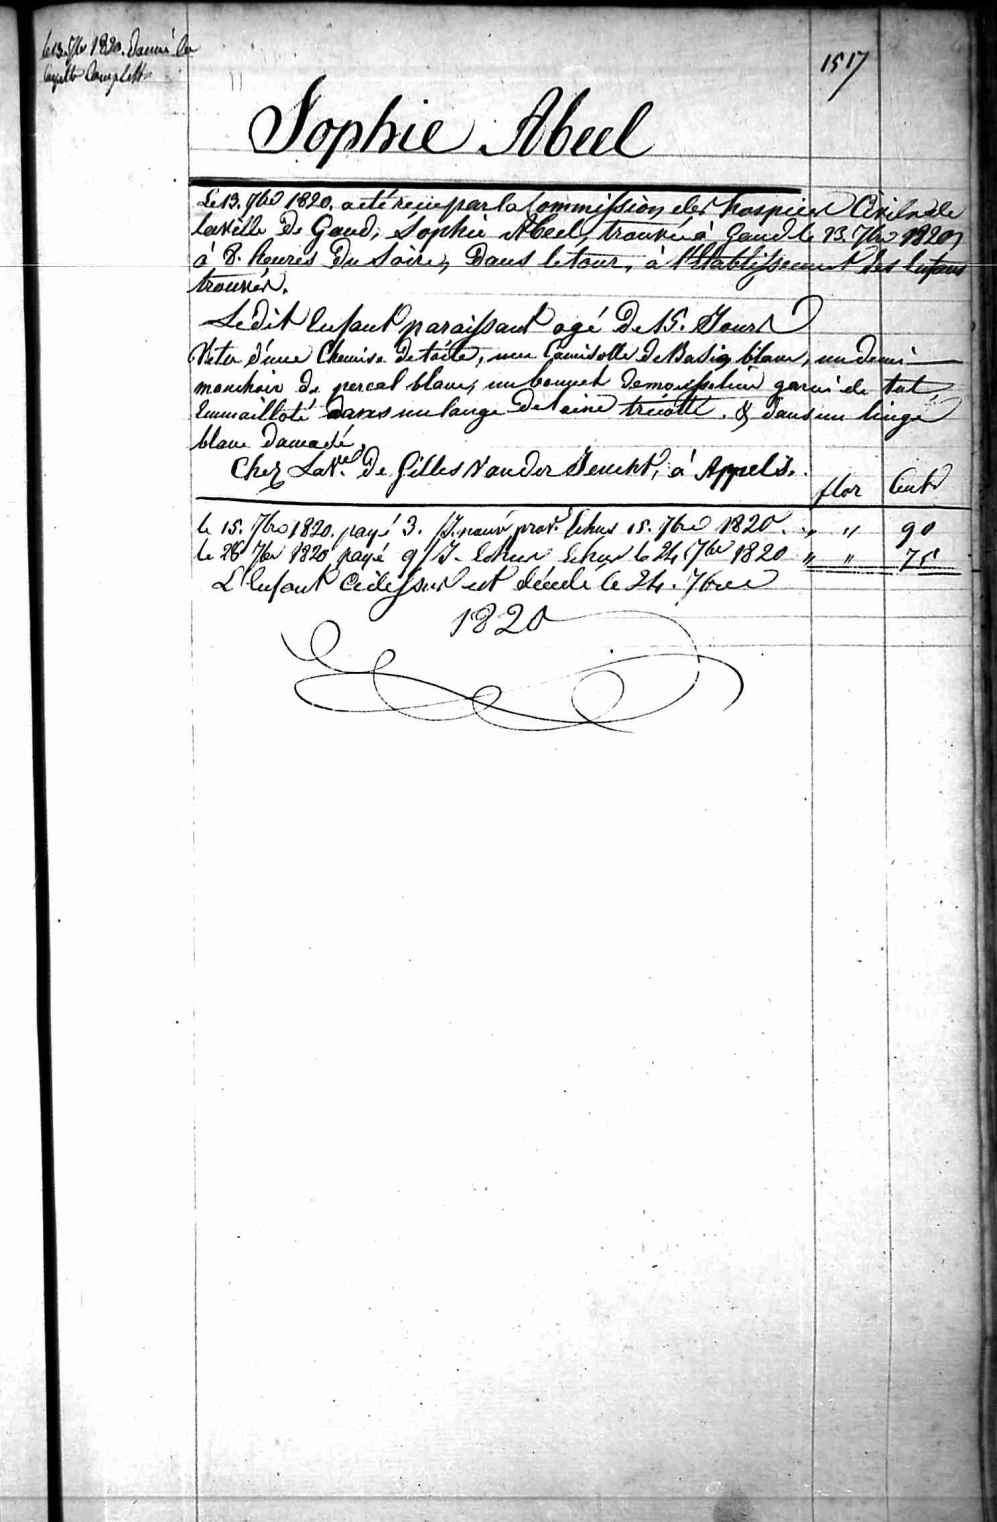 le 13. 7bre 1820. Donné la
layette Complette
1517
Sophie Abeel
Le 13. 7bre 1820. a été reçue par la Commission des hospices Civils de
la Ville de Gand, Sophie Abeel, trouvée à Gand le 13. 7bre 1820,
à 8. heures du Soire, Dans le tour, à l'Etablissement des Enfans
trouvés.
Le dit Enfant paraissant agé de 15. Jours
Vetu d'une Chemise de toile, une Camisolle de Basin blanc, un demi
mouchoir de percal blanc, un bonnet de mousseline garni de tul,
Emmailloté dans un lange de laine tricotté. & dans un linge
blanc damacé,
Chez La Ve. de Gilles Vander Jeucht, à Appels.
flor Cents
le 15. 7bre 1820. payé 3. J. nourr. prov.e Echus 15. 7bre 1820. " " 90
le 28 7bre 1820 payé 9 J. Echus le 24 7bre 1820 " " 75
L'Enfant Cidessus est décédé le 24. 7bre
1820